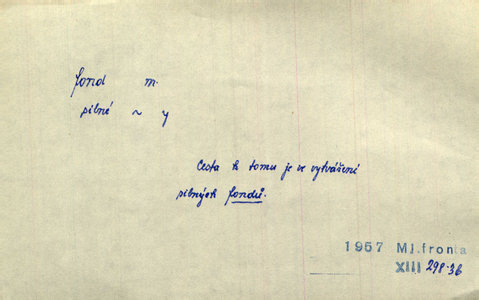 fond m.
silné ~ y
Cesta k tomu je ve vytváření
silných fondů.
1957 Ml.fronta
XIII 298-36